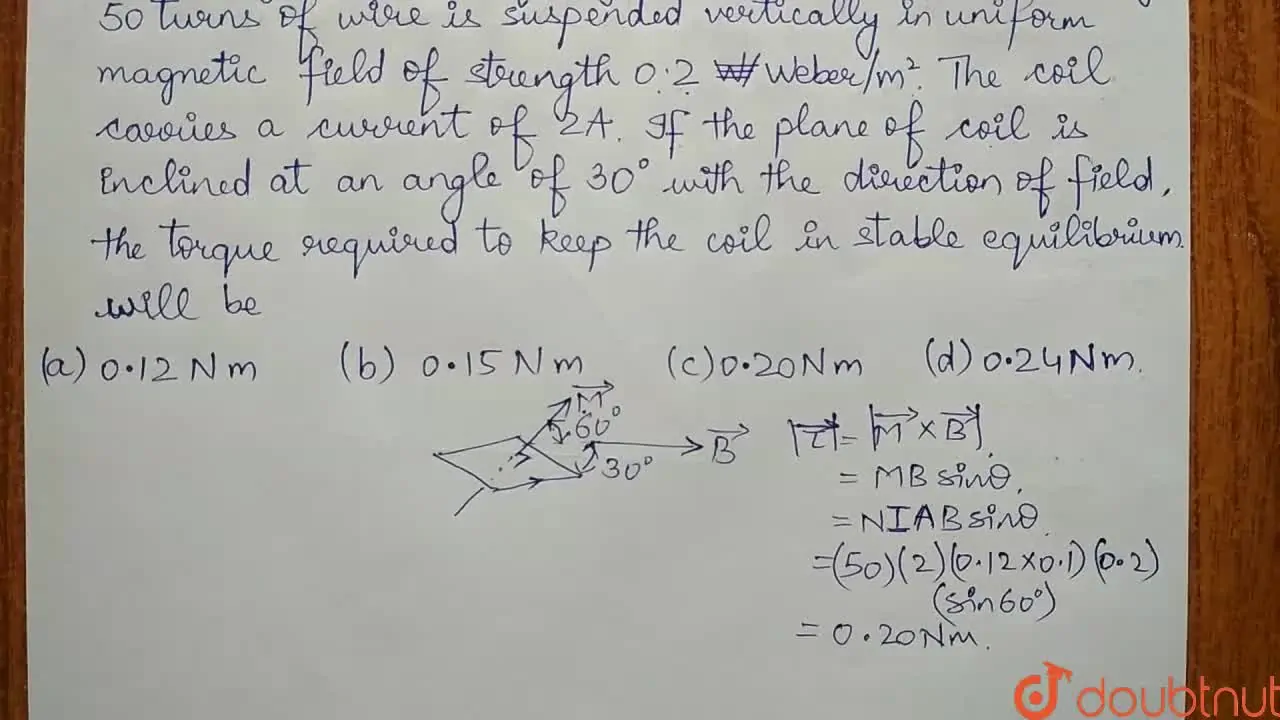 50 turns of wire is suspended vertically in uniform
magnetic field of strength 0.2 Weber/m². The coil
carries a current of 2A. If the plane of coil is
inclined at an angle of 30° with the direction of field,
the torque required to keep the coil in stable equilibrium
will be
(a) 0.12 Nm (b) 0.15 Nm (c) 0.20Nm (d) 0.24Nm.
M⃗
60°
B⃗
30°
|τ⃗| = |M⃗ × B⃗|
= MB sinθ.
= NIAB sinθ
= (50)(2)(0.12×0.1)(0.2)
(sin60°)
= 0.20Nm.
doubtnut